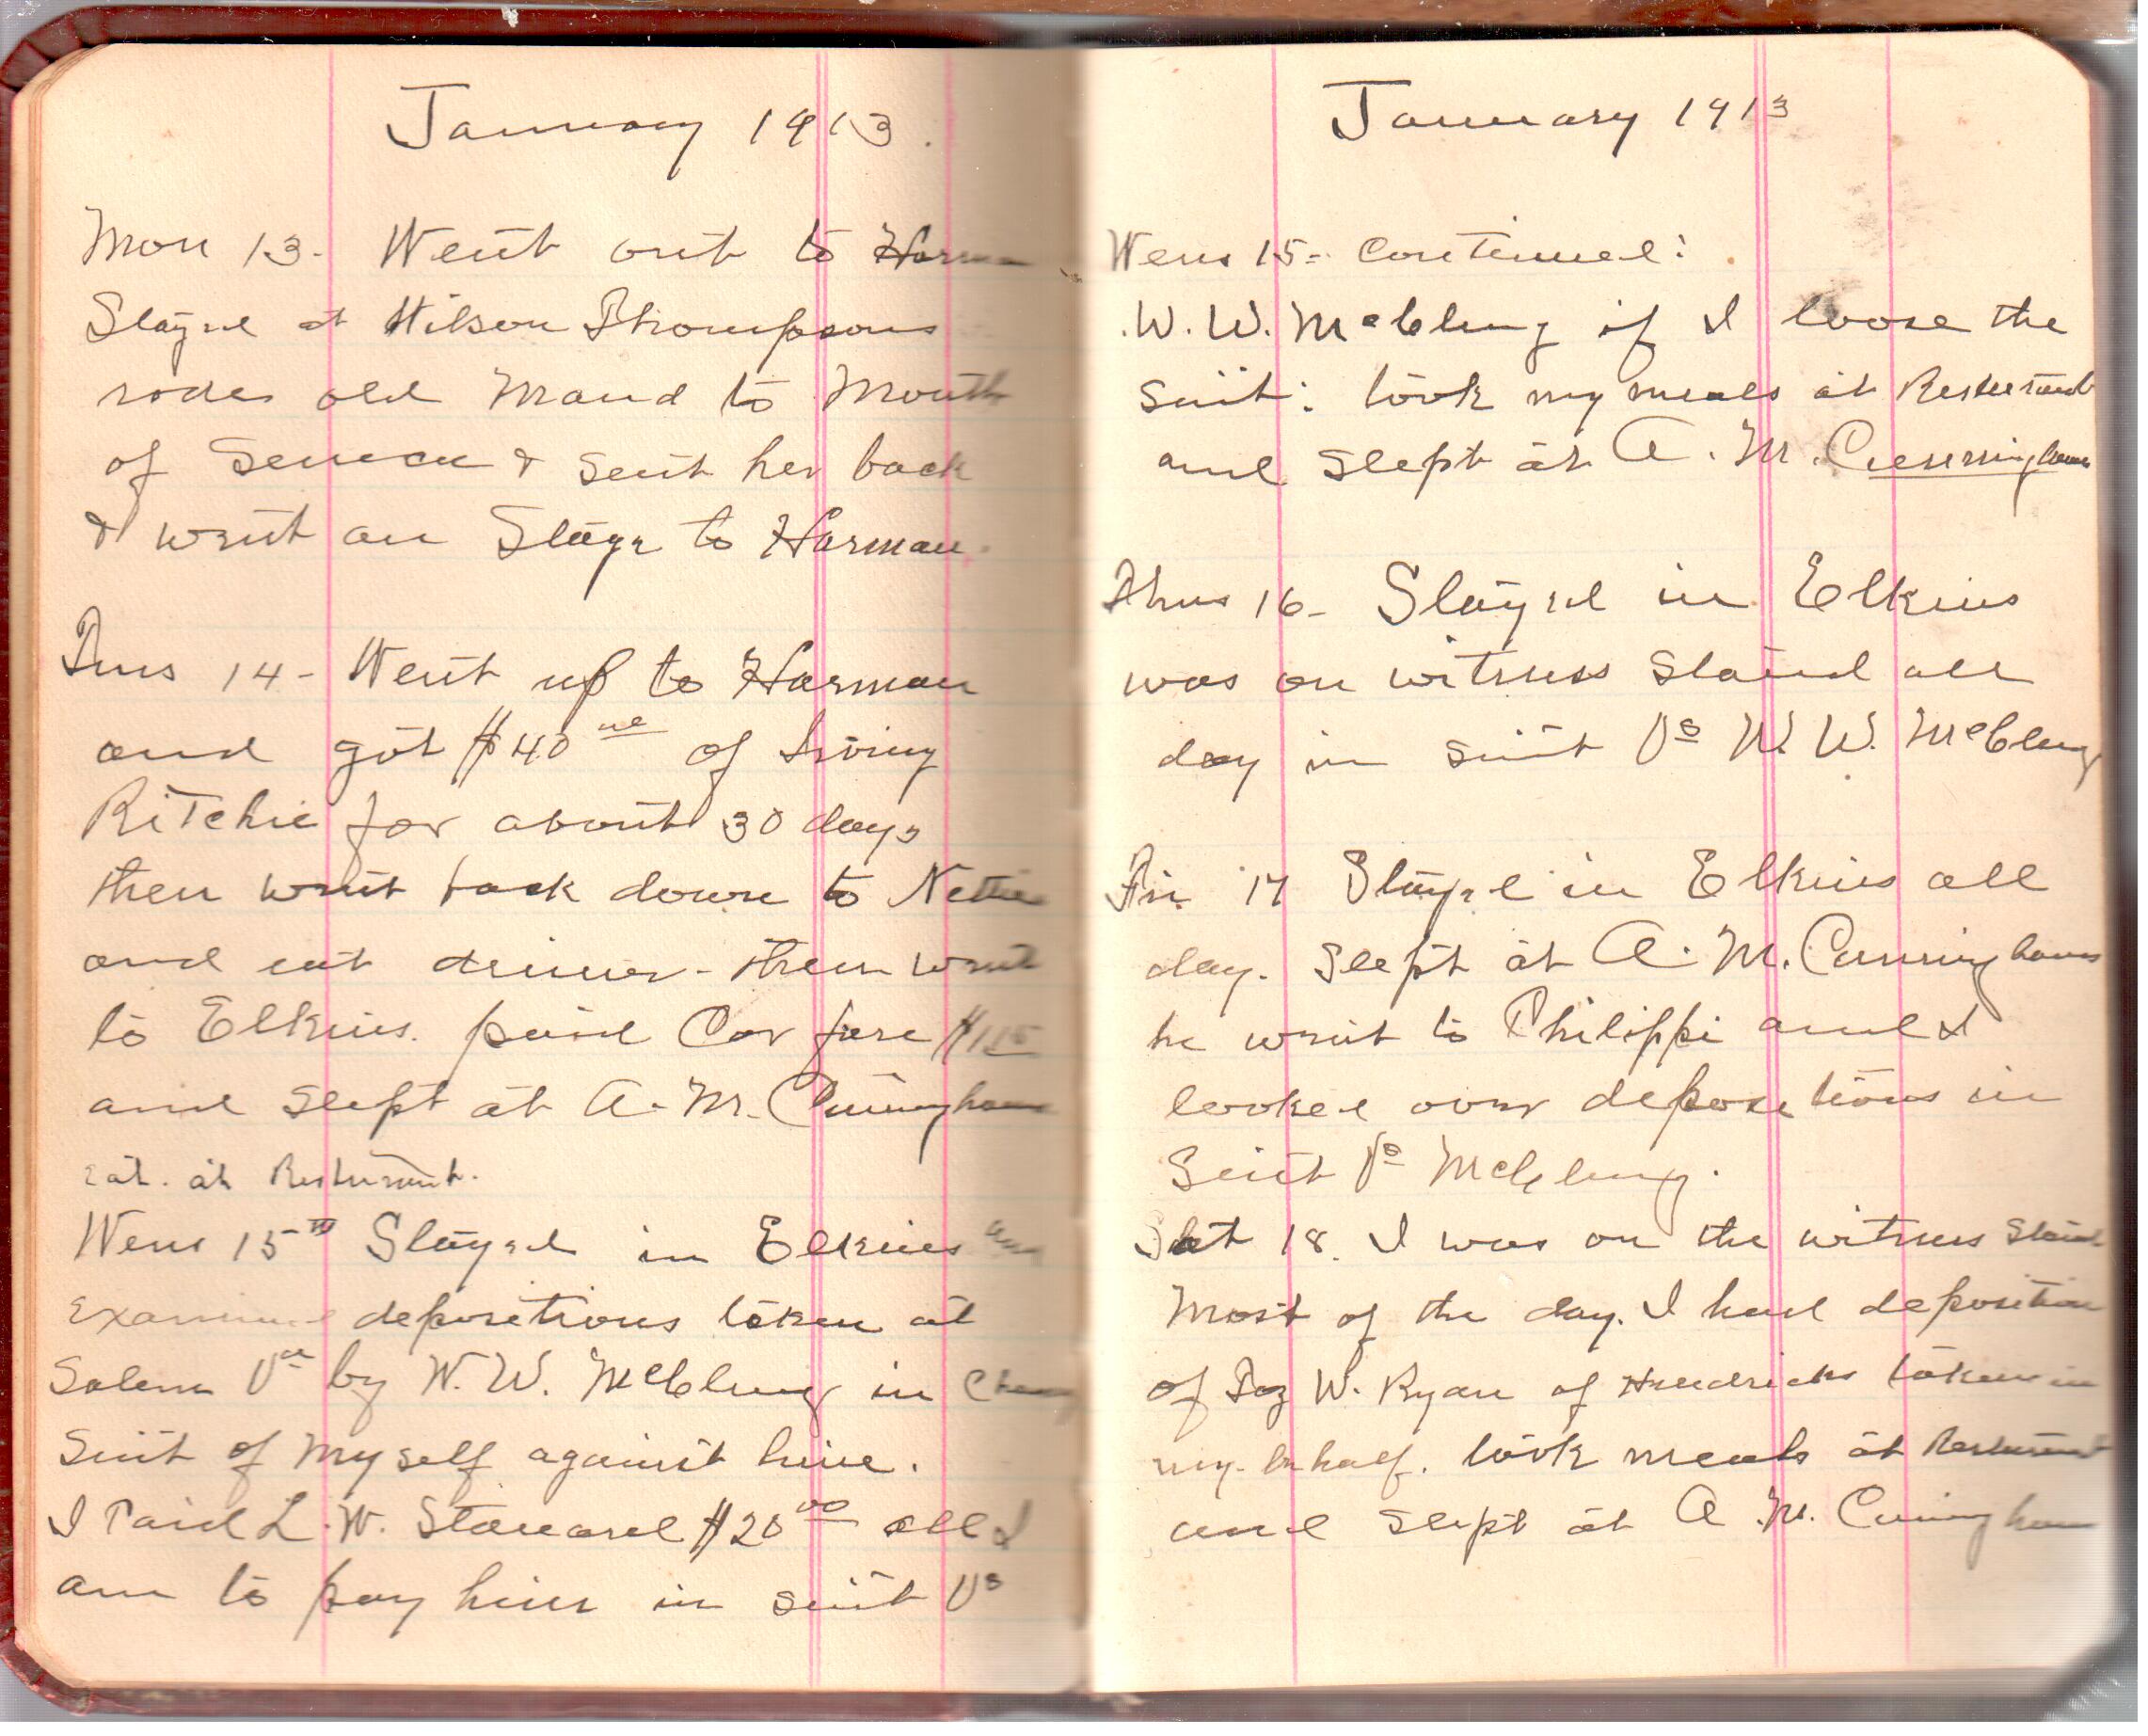 January 1913.
Mon 13- Went out to Harman
Stayed at Wilson Thompsons
rode old Maud to Mouth
of Seneca & sent her back
& went on Stage to Harman.
Tues 14- Went up to Harman
and got $40 of Irving
Ritchie for about 30 days
then went back down to Nettie
and eat dinner - then went
to Elkins. paid Car fare $1.15
and slept at A. M. Cuningham
eat. at Resturant.
Wens 15th Stayed in Elkins and
Examined depositions taken at
Salem Va by W. W. McClung in
Suit of Myself against him.
I Paid L. W. $20.00 all I
am to pay him in suit Vs
January 1913
Wens 15- Continued:
W. W. McClung if I loose the
suit: took my meals at Resturant
and slept at A. M. Cunninghams
Thus 16- Stayed in Elkins
was on witness stand all
day in suit Vs W. W. McClung
Fri 17 Stayed in Elkins all
day. Slept at A. M. Cunninghams
he went to Philippi and I
looked over depositions in
Suit Vs McClung.
Sat 18. I was on the witness stand
Most of the day. I had deposition
of W. Ryan of Hendricks taken in
my behalf. took meals at Resturant
and slept at A. M. Cuningham